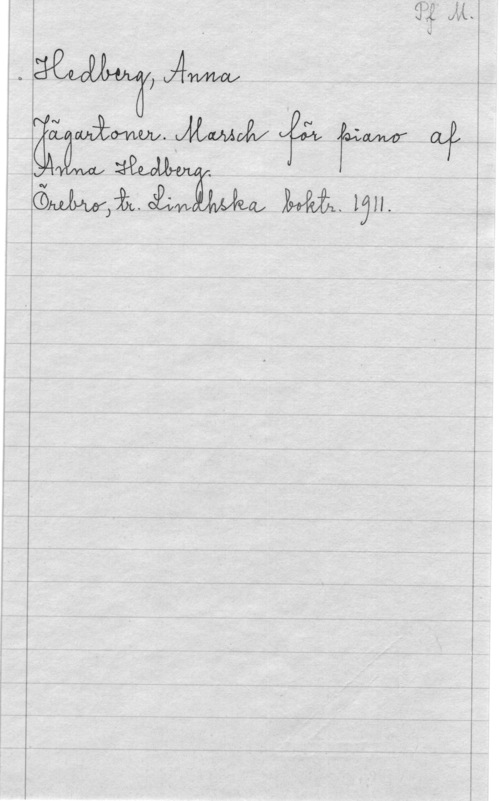 Pf M.
Hedberg, Anna
Jägartoner. Marsch för piano af
Anna Hedberg.
Örebro, tr. Lindhska boktr. 1911.